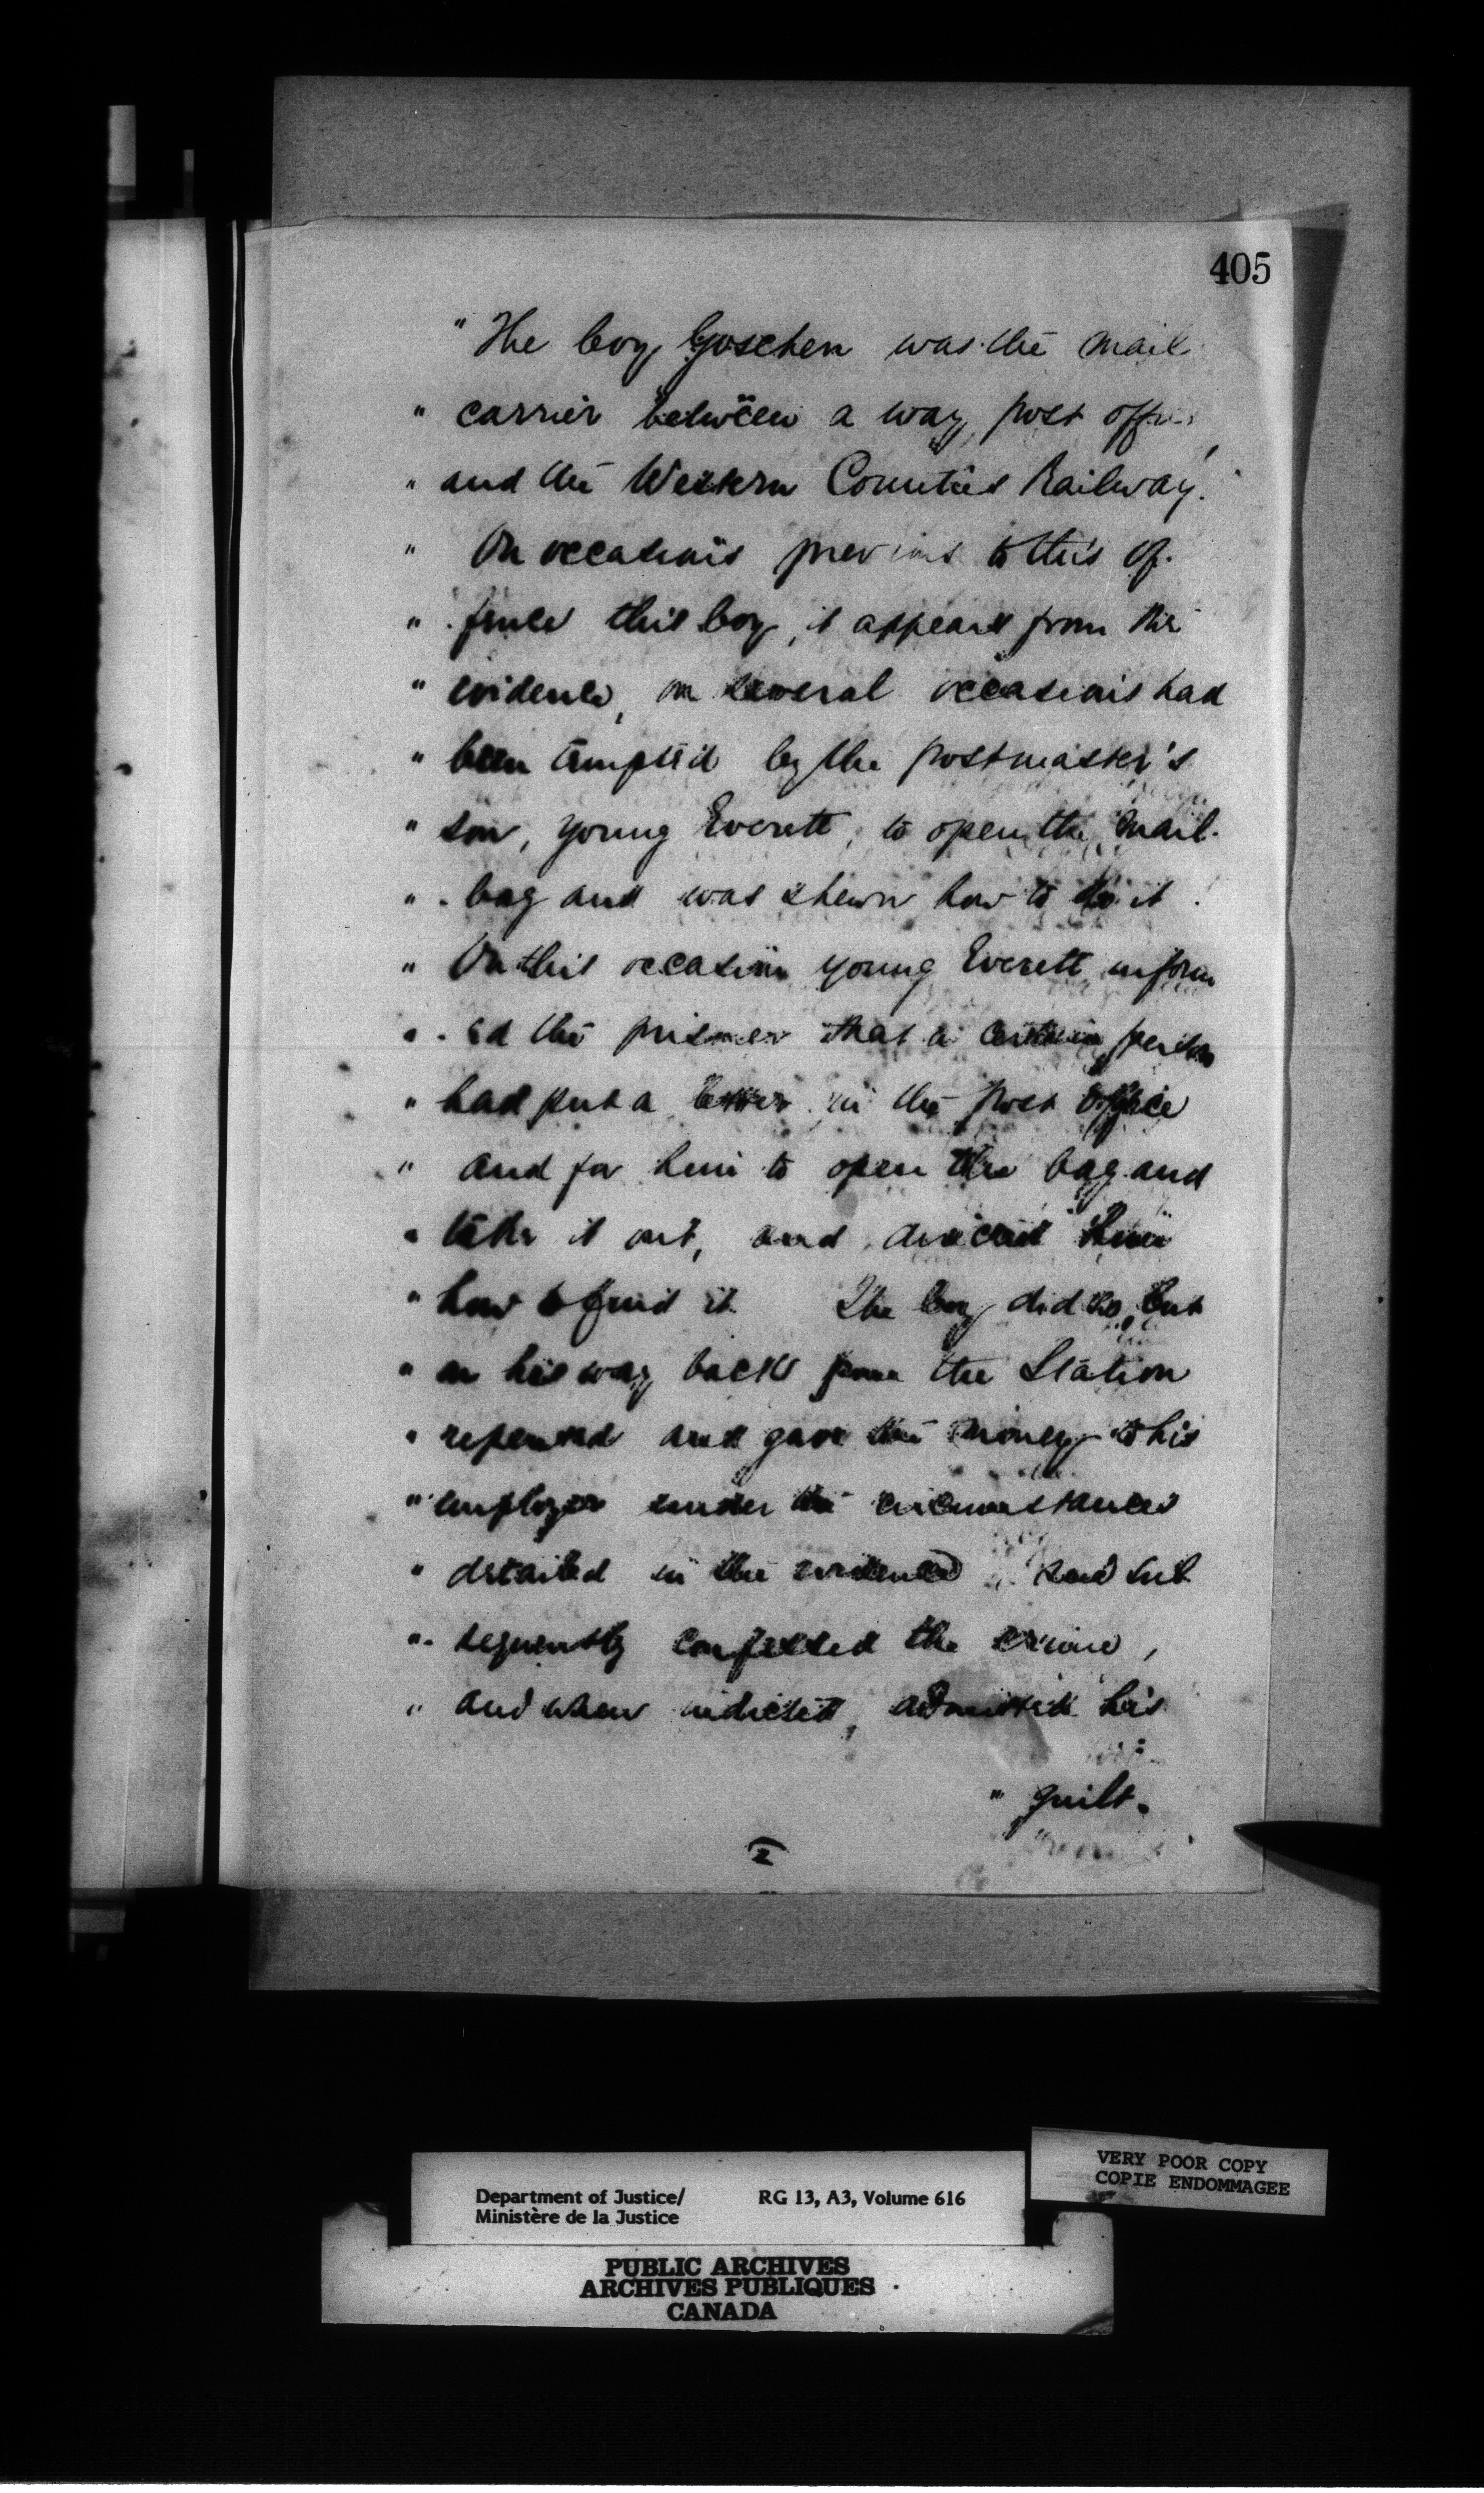 405
" The boy Goschen was the mail
" carrier between a way post office,
" and the Western Counties Railway.
" On occasions previous to this of-
" -fence this boy, it appears from the
" evidence, on several occasions had
" been tempted by the postmaster's
" son, young Everett, to open the mail-
" -bag and was shewn how to do it.
" On this occasion young Everett inform
" -ed the prisoner that a certain person
" had put a letter in the post office
" and for him to open the bag and
" take it out, and directed him
" how to find it The boy did so, but
" on his way back from the Station
" repented and gave the money to his
" employer under the circumstances
" detailed in the evidence and sub
" -sequently confessed the crime,
" and when indicted, admitted his
" guilt.
2
VERY POOR COPY
COPIE ENDOMMAGEE
Department of Justice/ RG 13, A3, Volume 616
Ministère de la Justice
PUBLIC ARCHIVES
ARCHIVES PUBLIQUES
CANADA